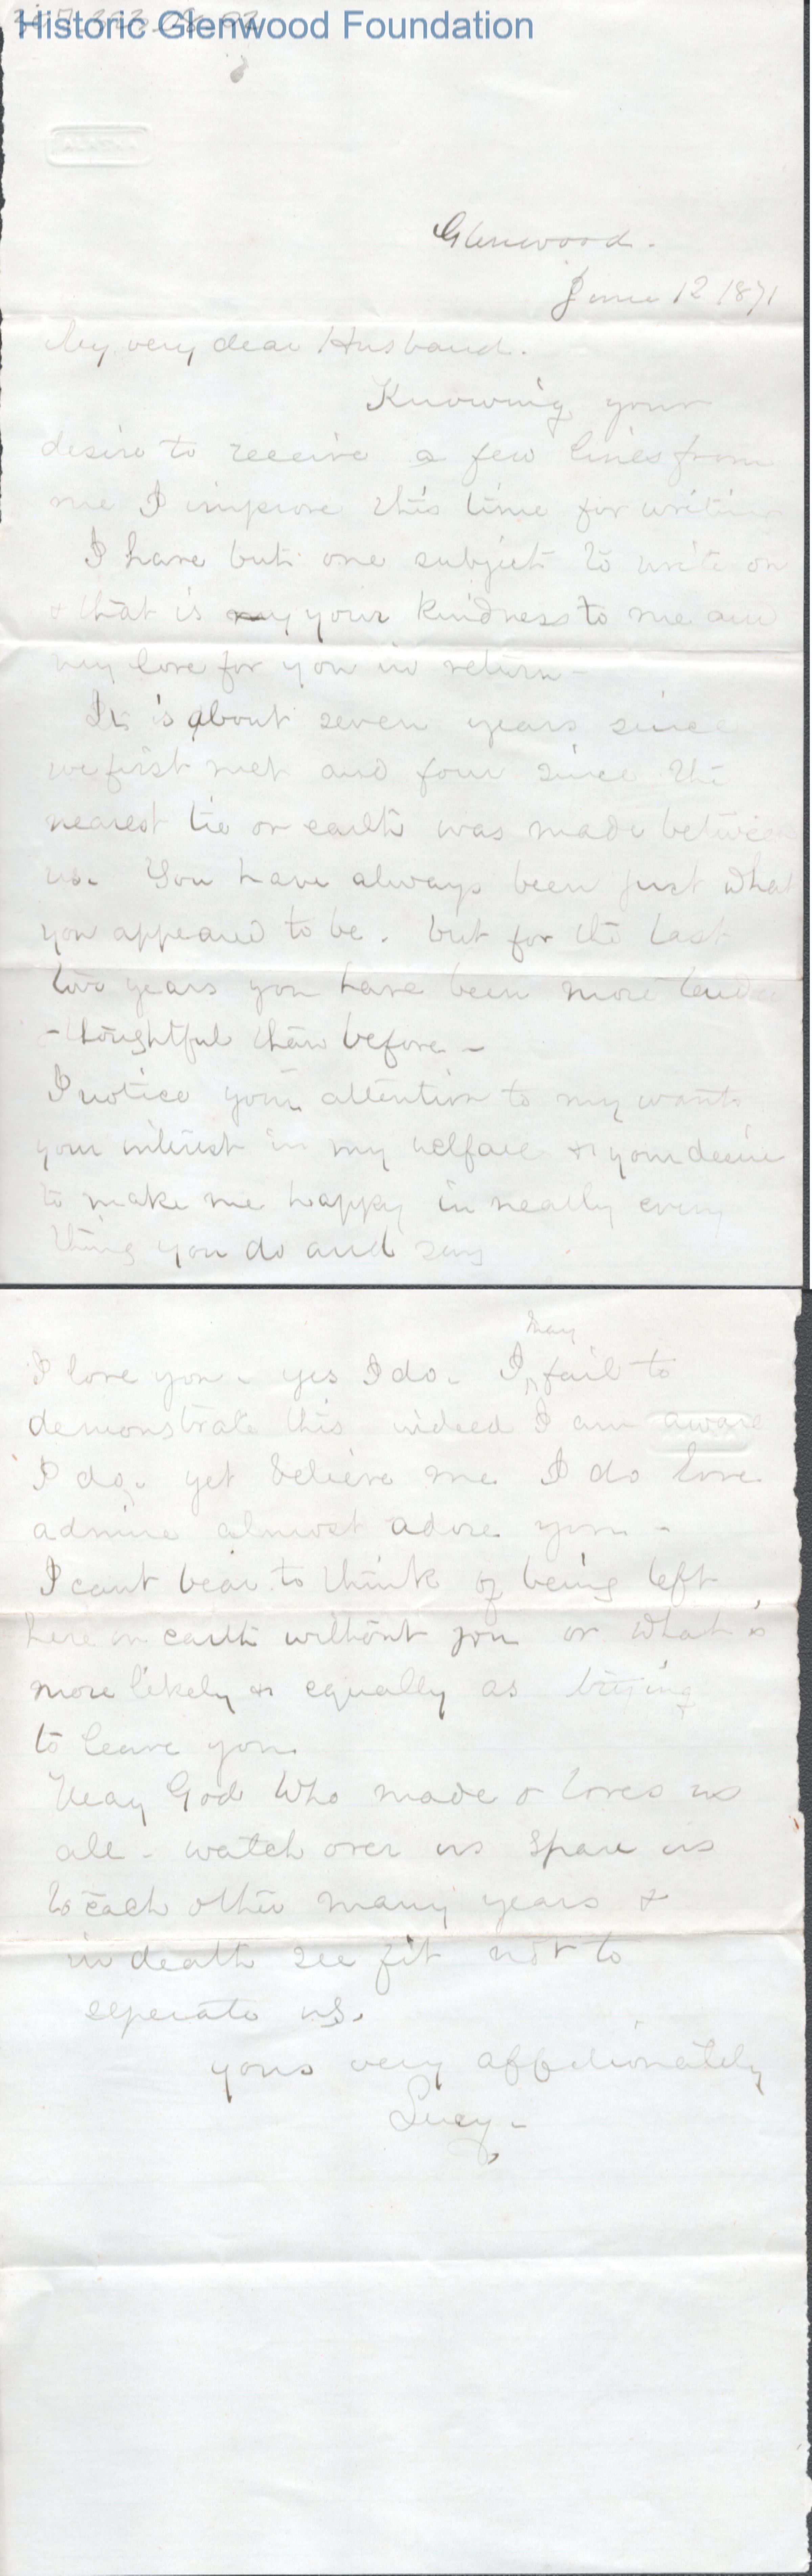 Historic Glenwood Foundation
Glenwood.
June 12 1871
My very dear Husband.
Knowing your
desire to receive a few lines from
me I improve this time for writing
I have but one subject to write on
& that is my your kindness to me and
my love for you in return -
It is about seven years since
we first met and four since the
nearest tie on earth was made between
us. You have always been just what
you appeared to be. but for the last
two years you have been more tender
- thoughtful than before -
I notice your attention to my wants
your interest in my welfare & your desire
to make me happy in nearly every
thing you do and say
may
I love you - yes I do - I fail to
demonstrate this indeed I am aware
I do, yet believe me I do love
admire almost adore you -
I cant bear to think of being left
here on earth without you or what is
more likely & equally as trying
to leave you.
May God who made & loves us
all - watch over us spare us
to each other many years &
in death see fit not to
seperate us.
yours very affectionately
Lucy -